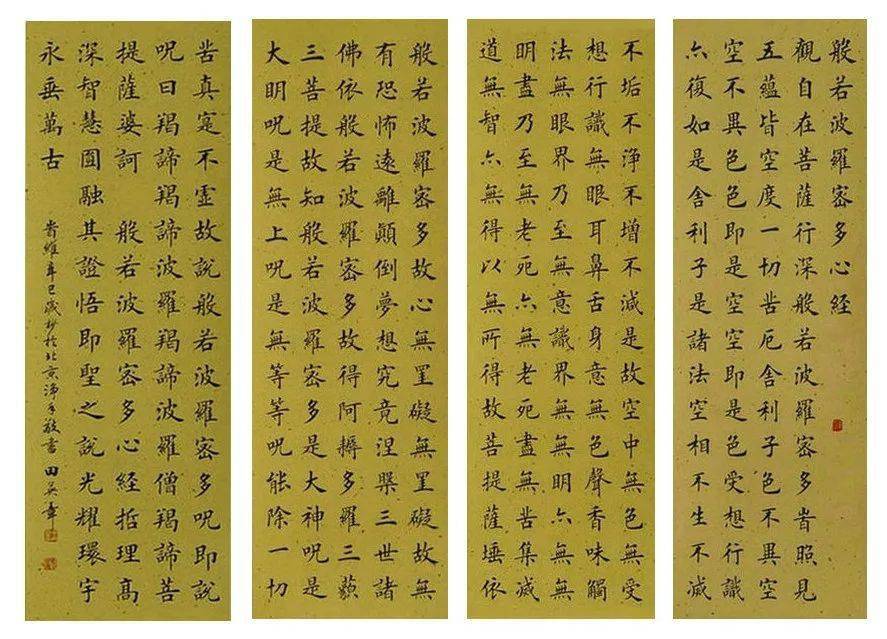 般若波羅密多心經
觀自在菩薩行深般若波羅密多旹照見
五蘊皆空度一切苦厄舍利子色不異空
空不異色色即是空空即是色受想行識
亦復如是舍利子是諸法空相不生不滅
不垢不淨不增不減是故空中無色無受
想行識無眼耳鼻舌身意無色聲香味觸
法無眼界乃至無意識界無無明亦無無
明盡乃至無老死亦無老死盡無苦集滅
道無智亦無得以無所得故菩提薩埵依
般若波羅密多故心無罣礙無罣礙故無
有恐怖遠離顛倒夢想究竟涅槃三世諸
佛依般若波羅密多故得阿耨多羅三藐
三菩提故知般若波羅密多是大神呪是
大明呪是無上呪是無等等呪能除一切
苦真寔不虛故說般若波羅密多呪即說
呪曰羯諦羯諦波羅羯諦波羅僧羯諦菩
提薩婆訶 般若波羅密多心經哲理高
深智慧圓融其證悟即聖之說光耀環宇
永垂萬古
旹維辛巳歲抄於北京淨手敬書 田英章